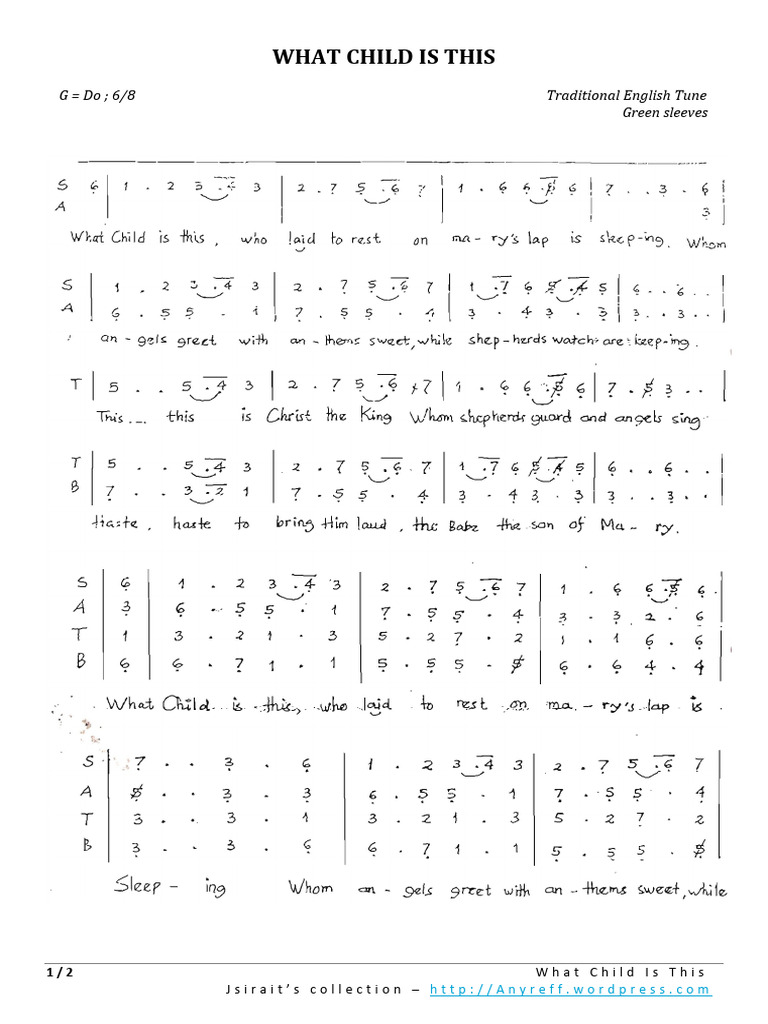 WHAT CHILD IS THIS
G = Do ; 6/8
Traditional English Tune
Green sleeves
S 6 | 1 . 2 3 .4 3 | 2 . 7 5 .6 7 | 1 . 6 6 .5 6 | 7 . . 3 . 6
A 3
What Child is this, who laid to rest on ma-ry's lap is sleep-ing. Whom
S | 1 . 2 3 .4 3 | 2 . 7 5 .6 7 | 1 .7 6 5 .4 5 | 6 . . 6 . .
A | 6 . 5 5 . 1 | 7 . 5 5 . 4 | 3 . 4 3 . 3 | 3 . . 3 . .
an-gels greet with an-thems sweet, while shep-herds watch are keep-ing.
T | 5 . . 5 .4 3 | 2 . 7 5 .6 7 | 1 . 6 6 .5 6 | 7 . 5 3 . .
This... this is Christ the King Whom shepherds guard and angels sing
T | 5 . . 5 .4 3 | 2 . 7 5 .6 7 | 1 .7 6 5 .4 5 | 6 . . 6 . .
B | 7 . . 3 .2 1 | 7 . 5 5 . 4 | 3 . 4 3 . 3 | 3 . . 3 . .
Haste, haste to bring Him laud, the Babe the son of Ma-ry.
S | 6 | 1 . 2 3 .4 3 | 2 . 7 5 .6 7 | 1 . 6 6 .5 6
A | 3 | 6 . 5 5 . 1 | 7 . 5 5 . 4 | 3 . 3 2 . 6
T | 1 | 3 . 2 1 . 3 | 5 . 2 7 . 2 | 1 . 1 6 . 6
B | 6 | 6 . 7 1 . 1 | 5 . 5 5 . 5 | 6 . 6 4 . 4
What Child is this, who laid to rest on ma-ry's lap is
S | 7 . . 3 . 6 | 1 . 2 3 .4 3 | 2 . 7 5 .6 7
A | 5 . . 3 . 3 | 6 . 5 5 . 1 | 7 . 5 5 . 4
T | 3 . . 3 . 1 | 3 . 2 1 . 3 | 5 . 2 7 . 2
B | 3 . . 3 . 6 | 6 . 7 1 . 1 | 5 . 5 5 . 5
Sleep-ing Whom an-gels greet with an-thems sweet, while
1 / 2
What Child Is This
Jsirait's collection – http://Anyreff.wordpress.com